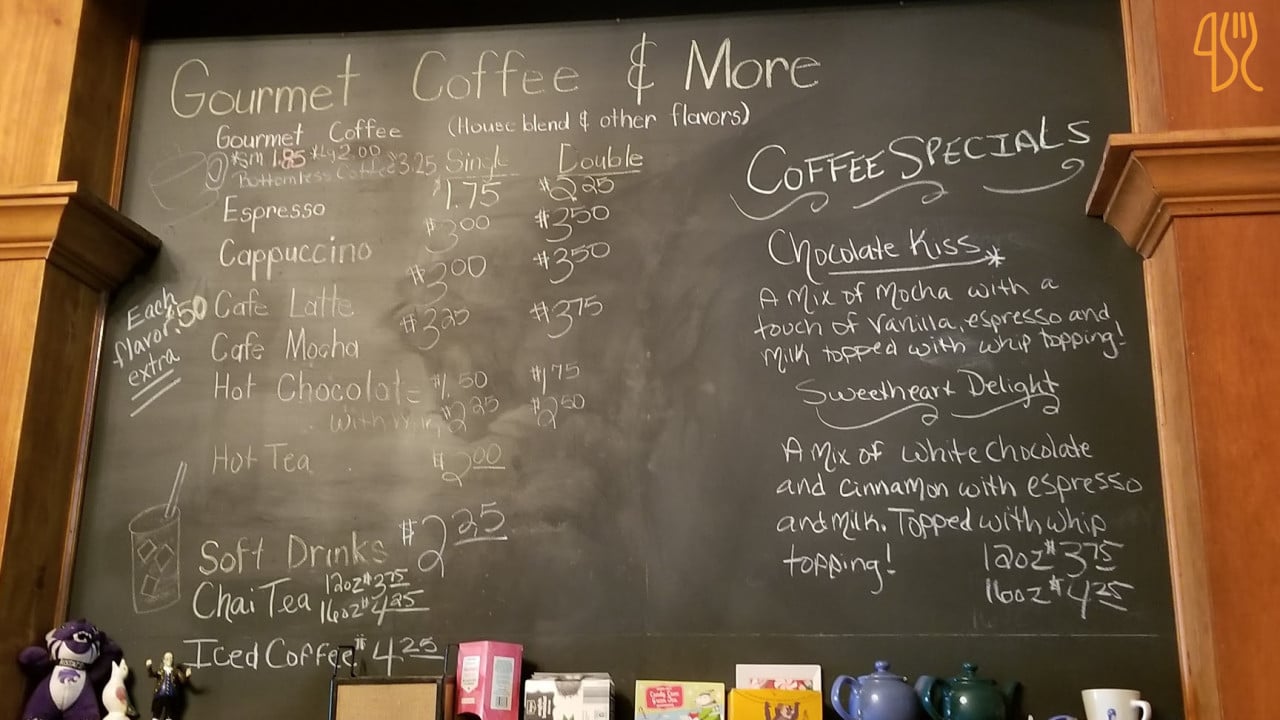 Gourmet Coffee & More
Gourmet Coffee (House blend & other flavors)
$sm 1.85 $Lg 2.00
Bottomless Coffee $3.25
Single Double
Espresso $1.75 $2.25
Cappuccino $3.00 $3.50
Cafe Latte $3.00 $3.50
Cafe Mocha $3.25 $3.75
Hot Chocolate $1.50 $1.75
with $2.25 $2.50
Hot Tea $2.00
Soft Drinks $2.25
Chai Tea 12oz $3.75
16oz $4.25
Iced Coffee $4.25
Each
flavor .50
extra
COFFEE SPECIALS
Chocolate Kiss*
A Mix of Mocha with a
touch of Vanilla, espresso and
Milk topped with whip topping!
Sweetheart Delight
A Mix of White Chocolate
and Cinnamon with espresso
and Milk. Topped with whip
topping!
12oz $3.75
16oz $4.25